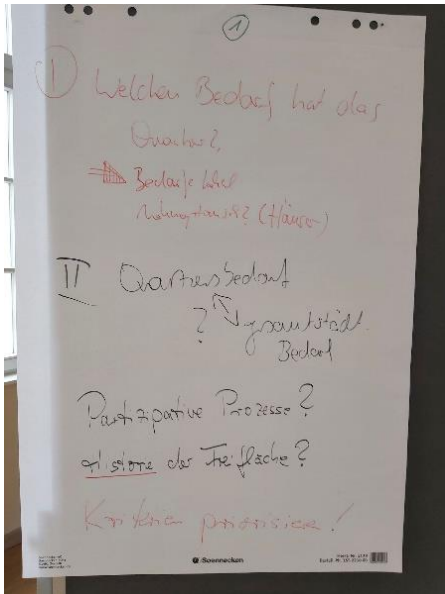 1
I Welchen Bedarf hat das
Quartier?
Bedarfe lokal
(Häuser)
II Quartiersbedarf
? gesamtstädt.
Bedarf
Partizipative Prozesse?
Historie der Freifläche?
Kriterien priorisieren!
Soennecken